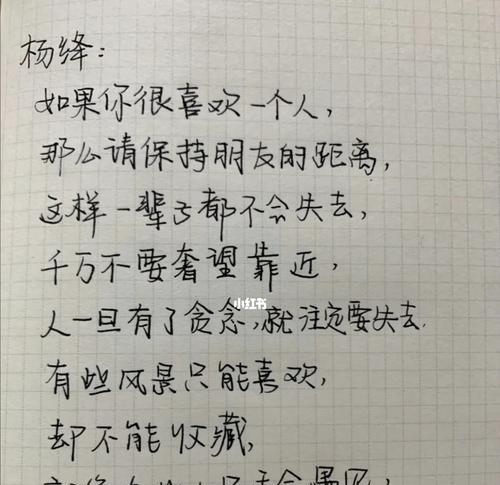 杨绛:
如果你很喜欢一个人,
那么请保持朋友的距离,
这样一辈子都不会失去,
千万不要奢望靠近,
小红书
人一旦有了贪念,就注定要失去.
有些风景只能喜欢,
却不能收藏,